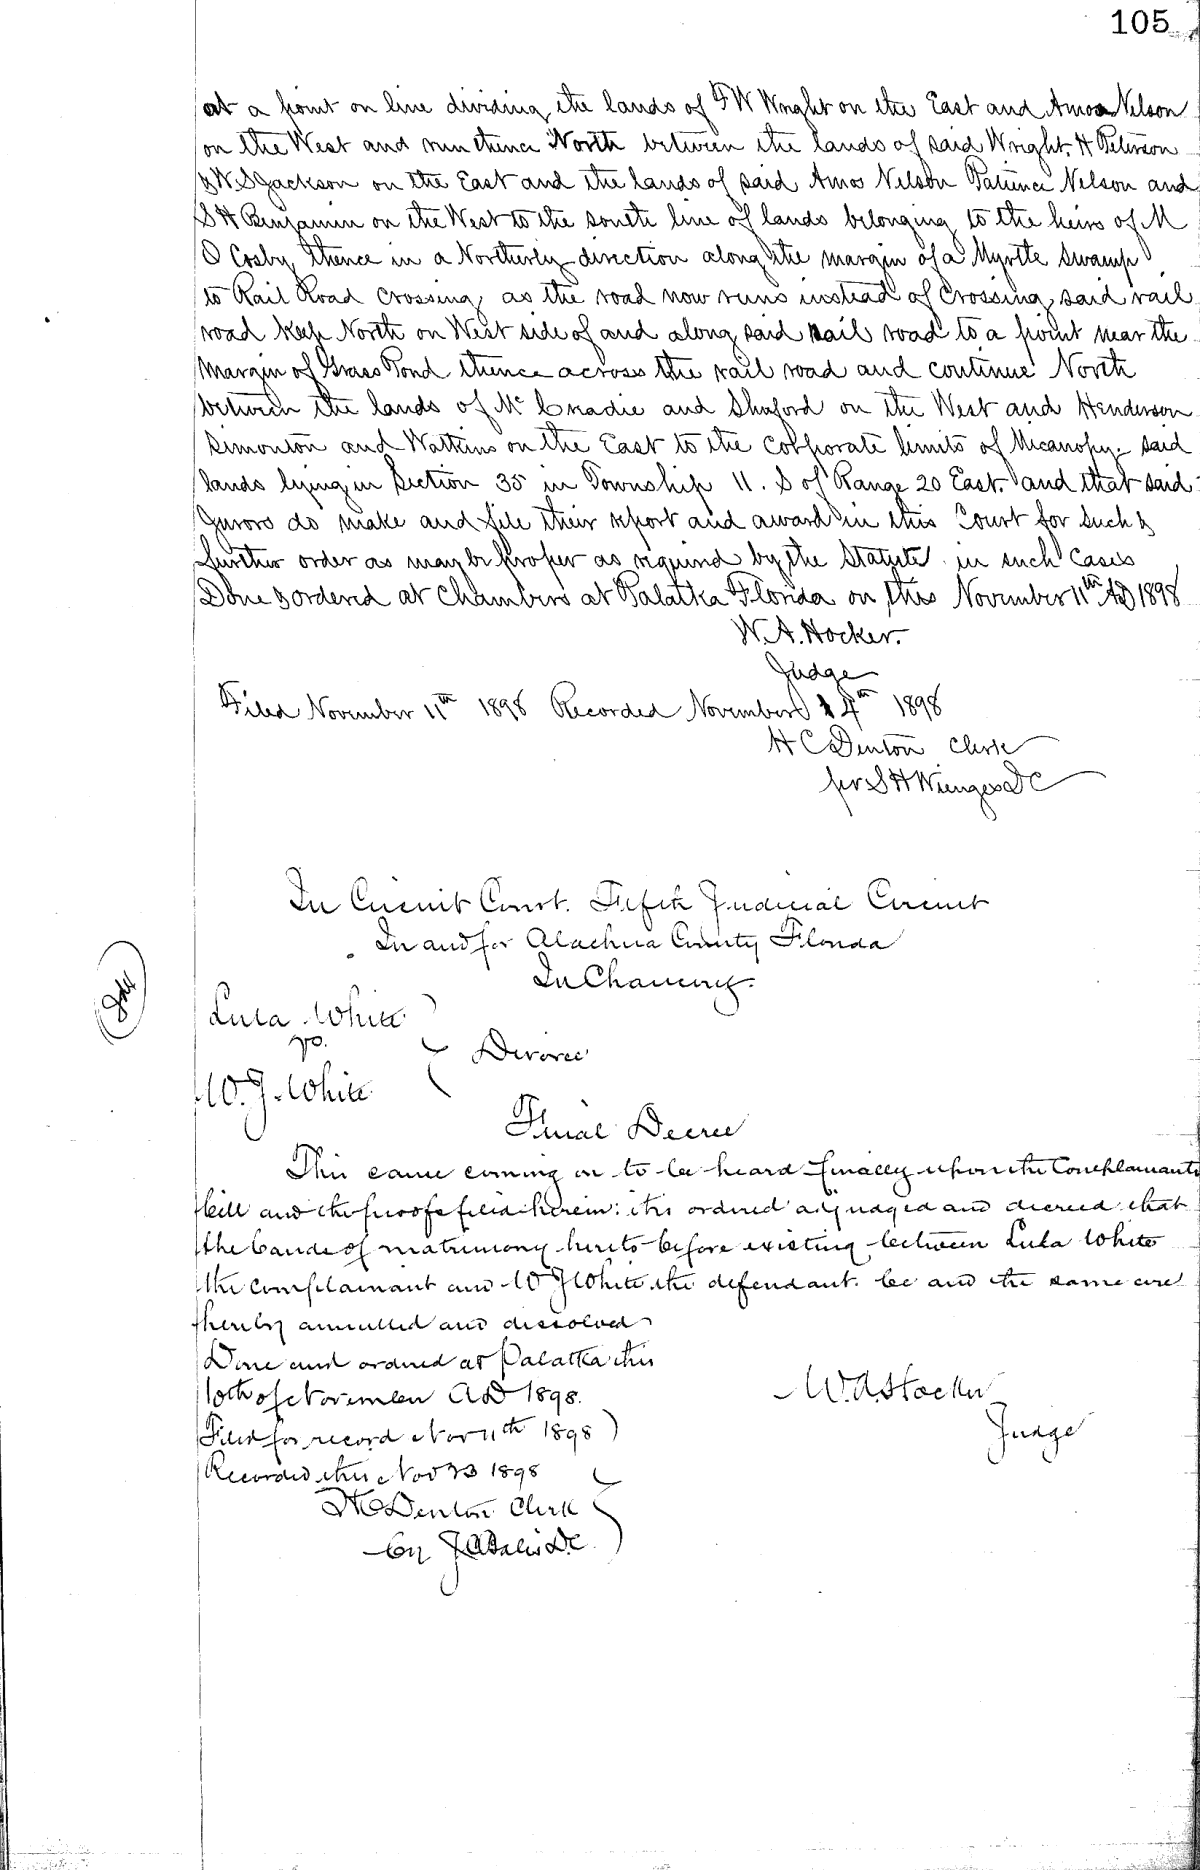 105
at a point on line dividing the lands of F W Wright on the East and Amos Nelson
on the West and run thence North between the lands of said Wright, H Peterson
& W. S Jackson on the East and the lands of said Amos Nelson Patience Nelson and
S H Benjamin on the West to the south line of lands belonging to the heirs of M
O Cosby, thence in a Northerly direction along the margin of a Myrtle Swamp
to Rail Road Crossing, as the road now runs instead of Crossing, said rail
road keep North on West side of and along said rail road to a point near the
Margin of Grass Pond thence across the rail road and continue North
between the lands of Mc Credie and Shuford on the West and Henderson
Simonton and Watkins on the East to the corporate limits of Micanopy. said
lands lying in Section 35 in Township 11. S of Range 20 East. and that said
Jurors do make and file their report and award in this Court for such &
further order as may be proper as required by the Statute in such cases
Done & ordered at Chambers at Palatka Florida on this November 11th AD 1898
W. A. Hocker.
Judge
Filed November 11th 1898 Recorded November 14th 1898
H C Denton Clerk
per S H Wienges D C
In Circuit Court. Fifth Judicial Circuit
In and for Alachua County Florida
In Chancery.
Lula White
vs.
Divorce
W. J. White
Final Decree
This cause coming on to be heard finally upon the Complainants
bill and the proofs filed herein: it is ordered adjudged and decreed that
the bands of matrimony hereto before existing between Lula White
the complainant and W J White the defendant. be and the same are
hereby annulled and dissolved
Done and ordered at Palatka this
10th of November A D 1898.
W. A. Hocker
Judge
Filed for record Nov 11th 1898
Recorded this Nov 23 1898
H C Denton Clerk
by D.C.